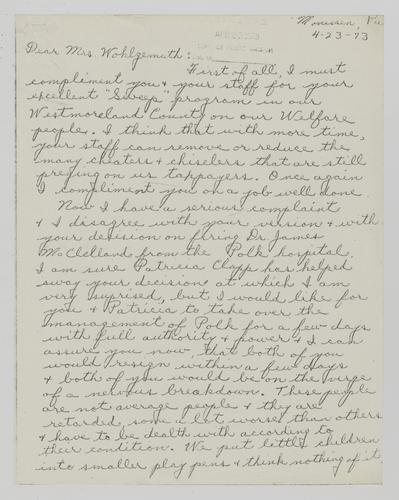 Monessen, Pa.
4-23-73
Dear Mrs. Wohlgemuth:
First of all, I must
compliment you & your staff for your
excellent "Sweep" program in our
Westmoreland County on our Welfare
people. I think that with more time,
your staff can remove or reduce the
many cheaters & chiselers that are still
preying on us taxpayers. Once again
I compliment you on a job well done.
Now I have a serious complaint
& I disagree with your version & with
your decision on firing Dr. James
McClelland from the Polk hospital.
I am sure Patricia Clapp has helped
sway your decision at which I am
very suprised, but I would like for
you & Patricia to take over the
management of Polk for a few days
with full authority & power & I can
assure you now, that both of you
would resign within a few days
& both of you would be on the virge
of a nervous breakdown. These people
are not average people & they are
retarded, some a lot worse than others
& have to be dealth with according to
their condition. We put little children
into smaller play pens & think nothing of it